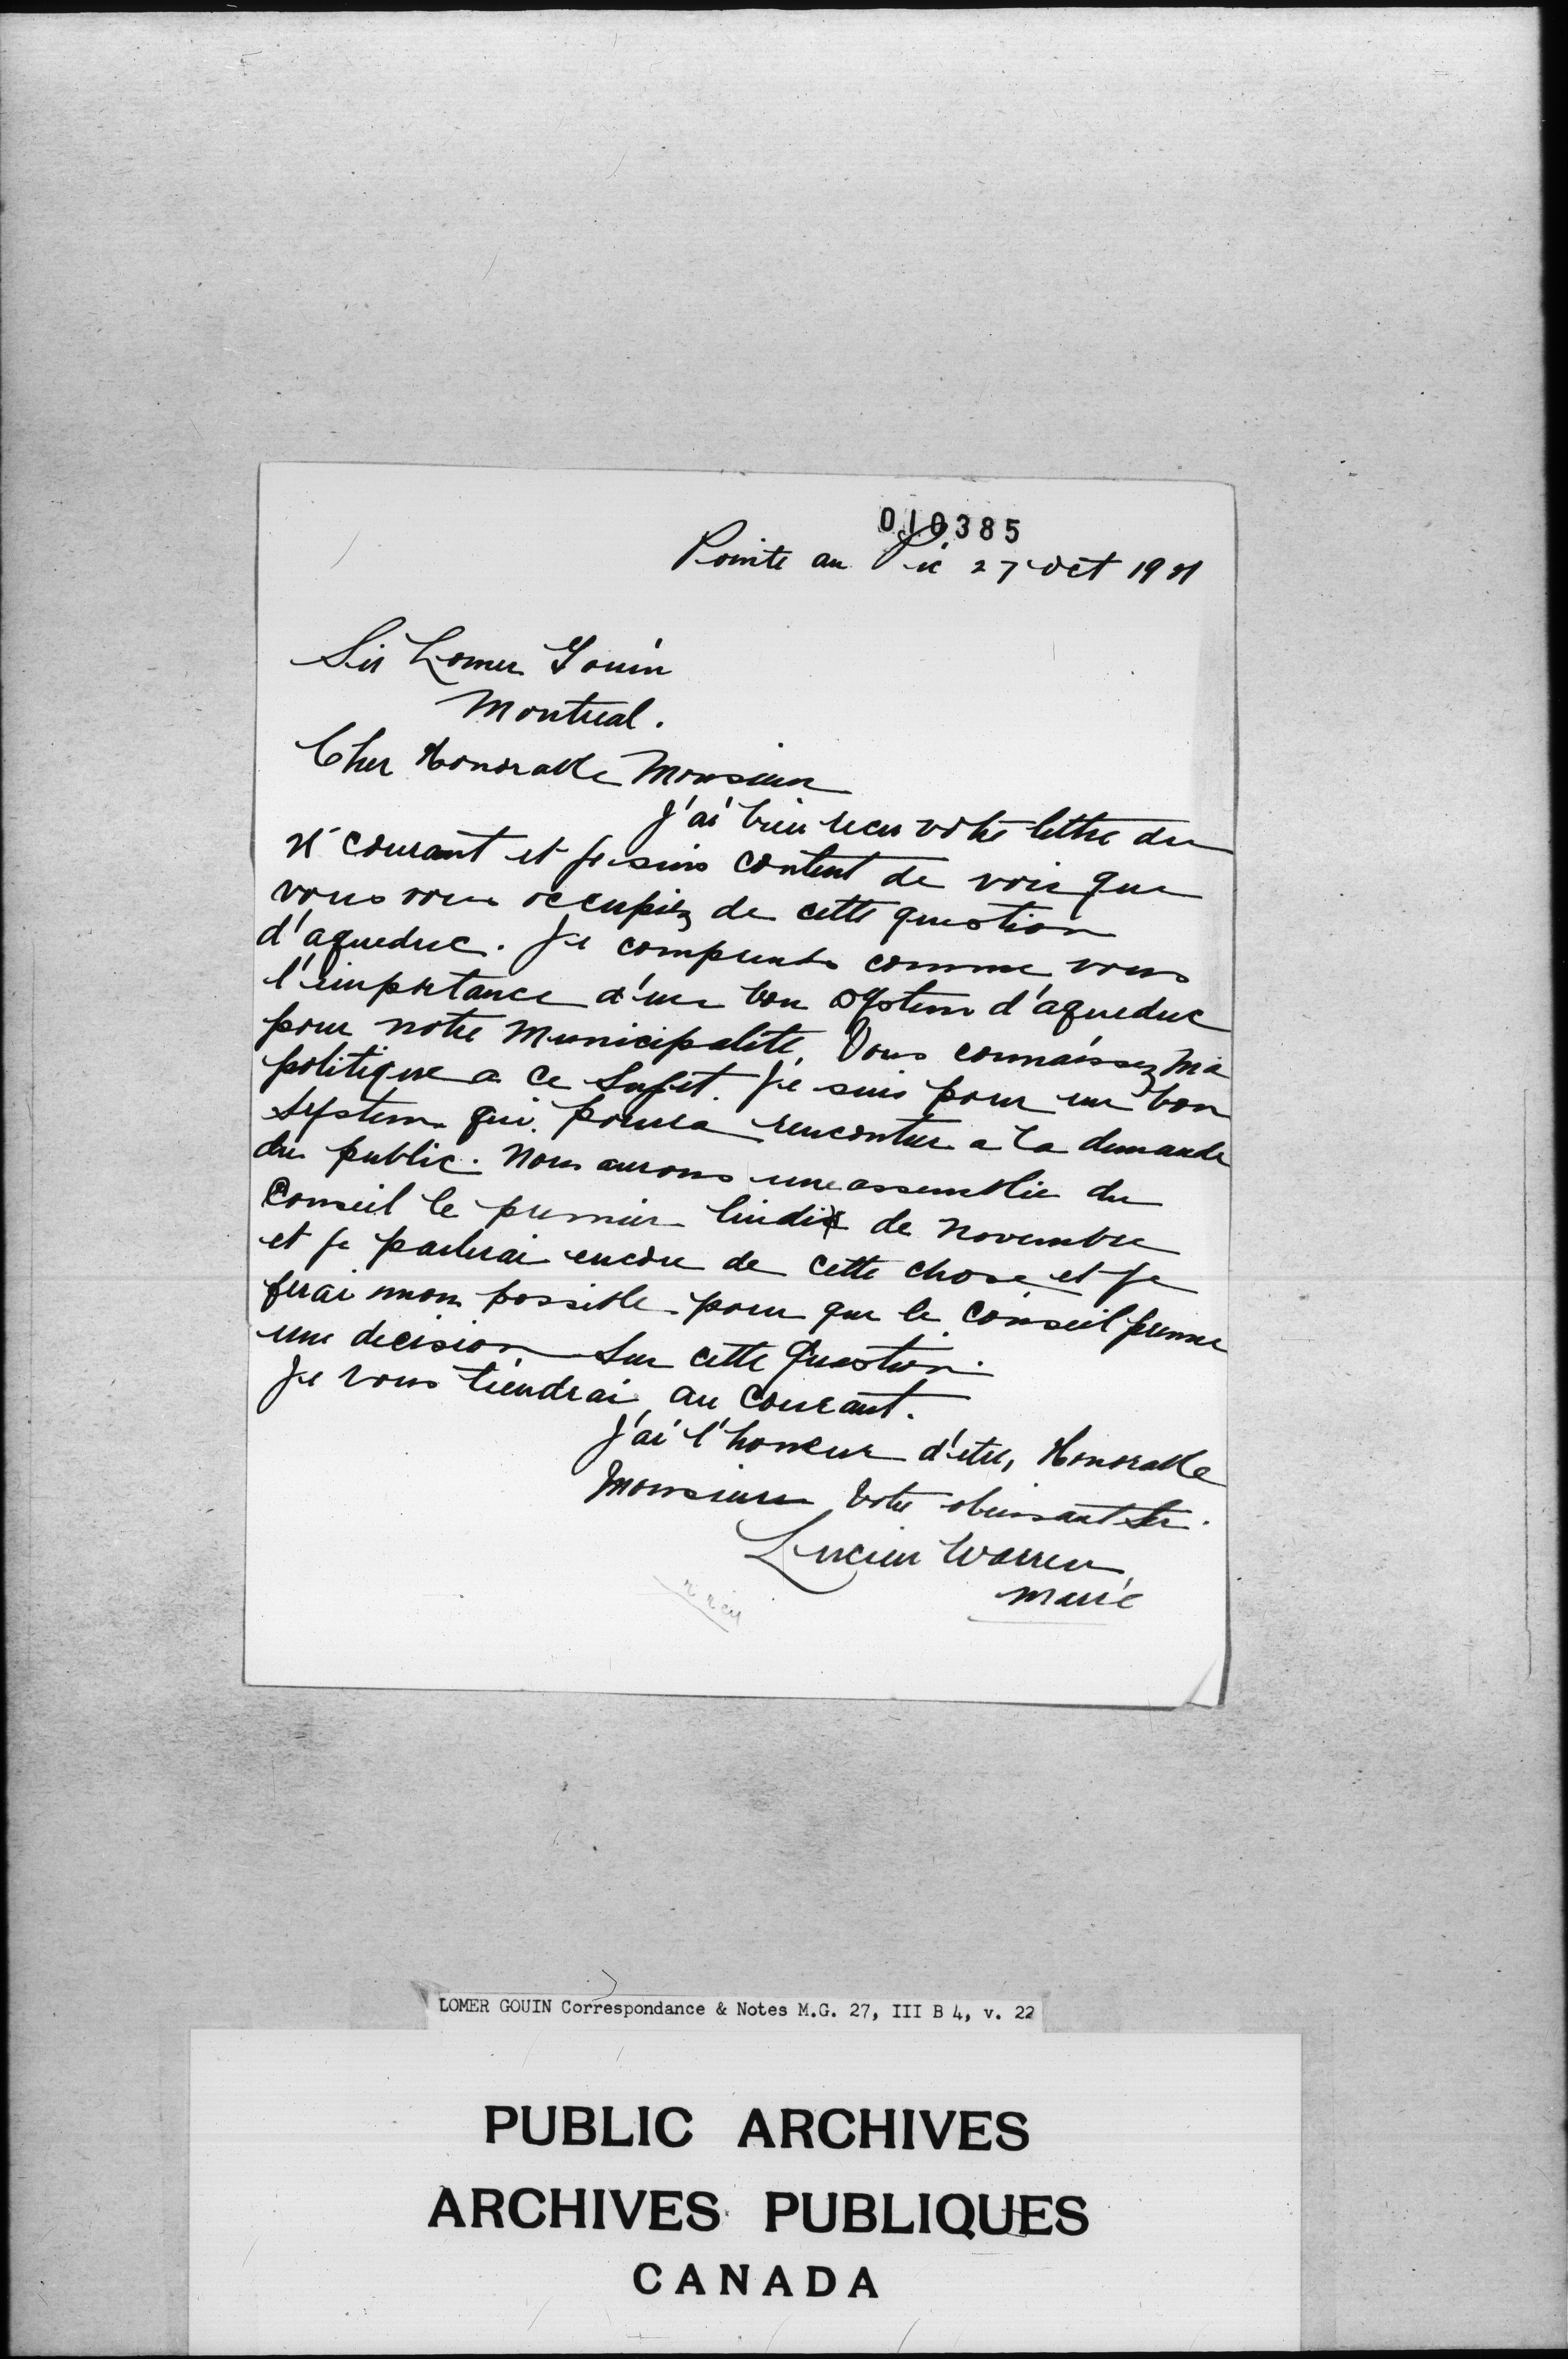 010385
Pointe au Pic 27 Oct 1921
Sir Lomer Gouin
Montreal.
Cher Honorable Monsieur
J'ai bien recu votre lettre du
courant et je suis content de voir que
vous vous occupiez de cette question
d'aqueduc. Je comprends comme vous
l'importance d'un bon system d'aqueduc
pour notre Municipalité. Vous connaissez ma
politique a ce Sujet. Je suis pour un bon
System qui poura rencontrer a la demande
du public. Nous aurons une assemblée du
Conseil le premier lundi de Novembre
et je parlerai encore de cette chose et je
ferai mon possible pour que le Conseil prenne
une decision Sur cette Question.
Je vous tiendrai au Courant.
J'ai l'honeur d'etre, Honorable
Monsieur Votre obeissant Ser.
Lucien Warren
Maire
LOMER GOUIN Correspondance & Notes M.G. 27, III B 4, v. 22
PUBLIC ARCHIVES
ARCHIVES PUBLIQUES
CANADA